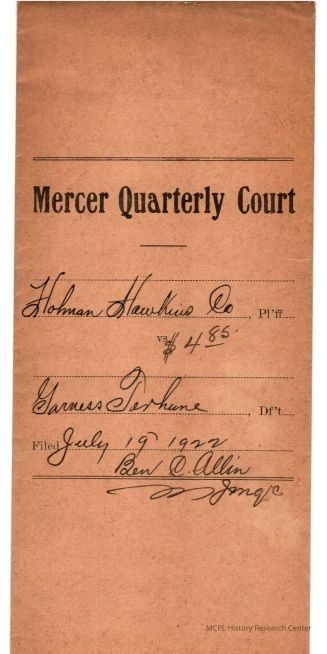 Mercer Quarterly Court
Holman Hawkins Co, Pl'ff
vs $4.85
Garness Terhune, Df't.
Filed July 19 1922
Ben C. Allin
MCPL History Research Center